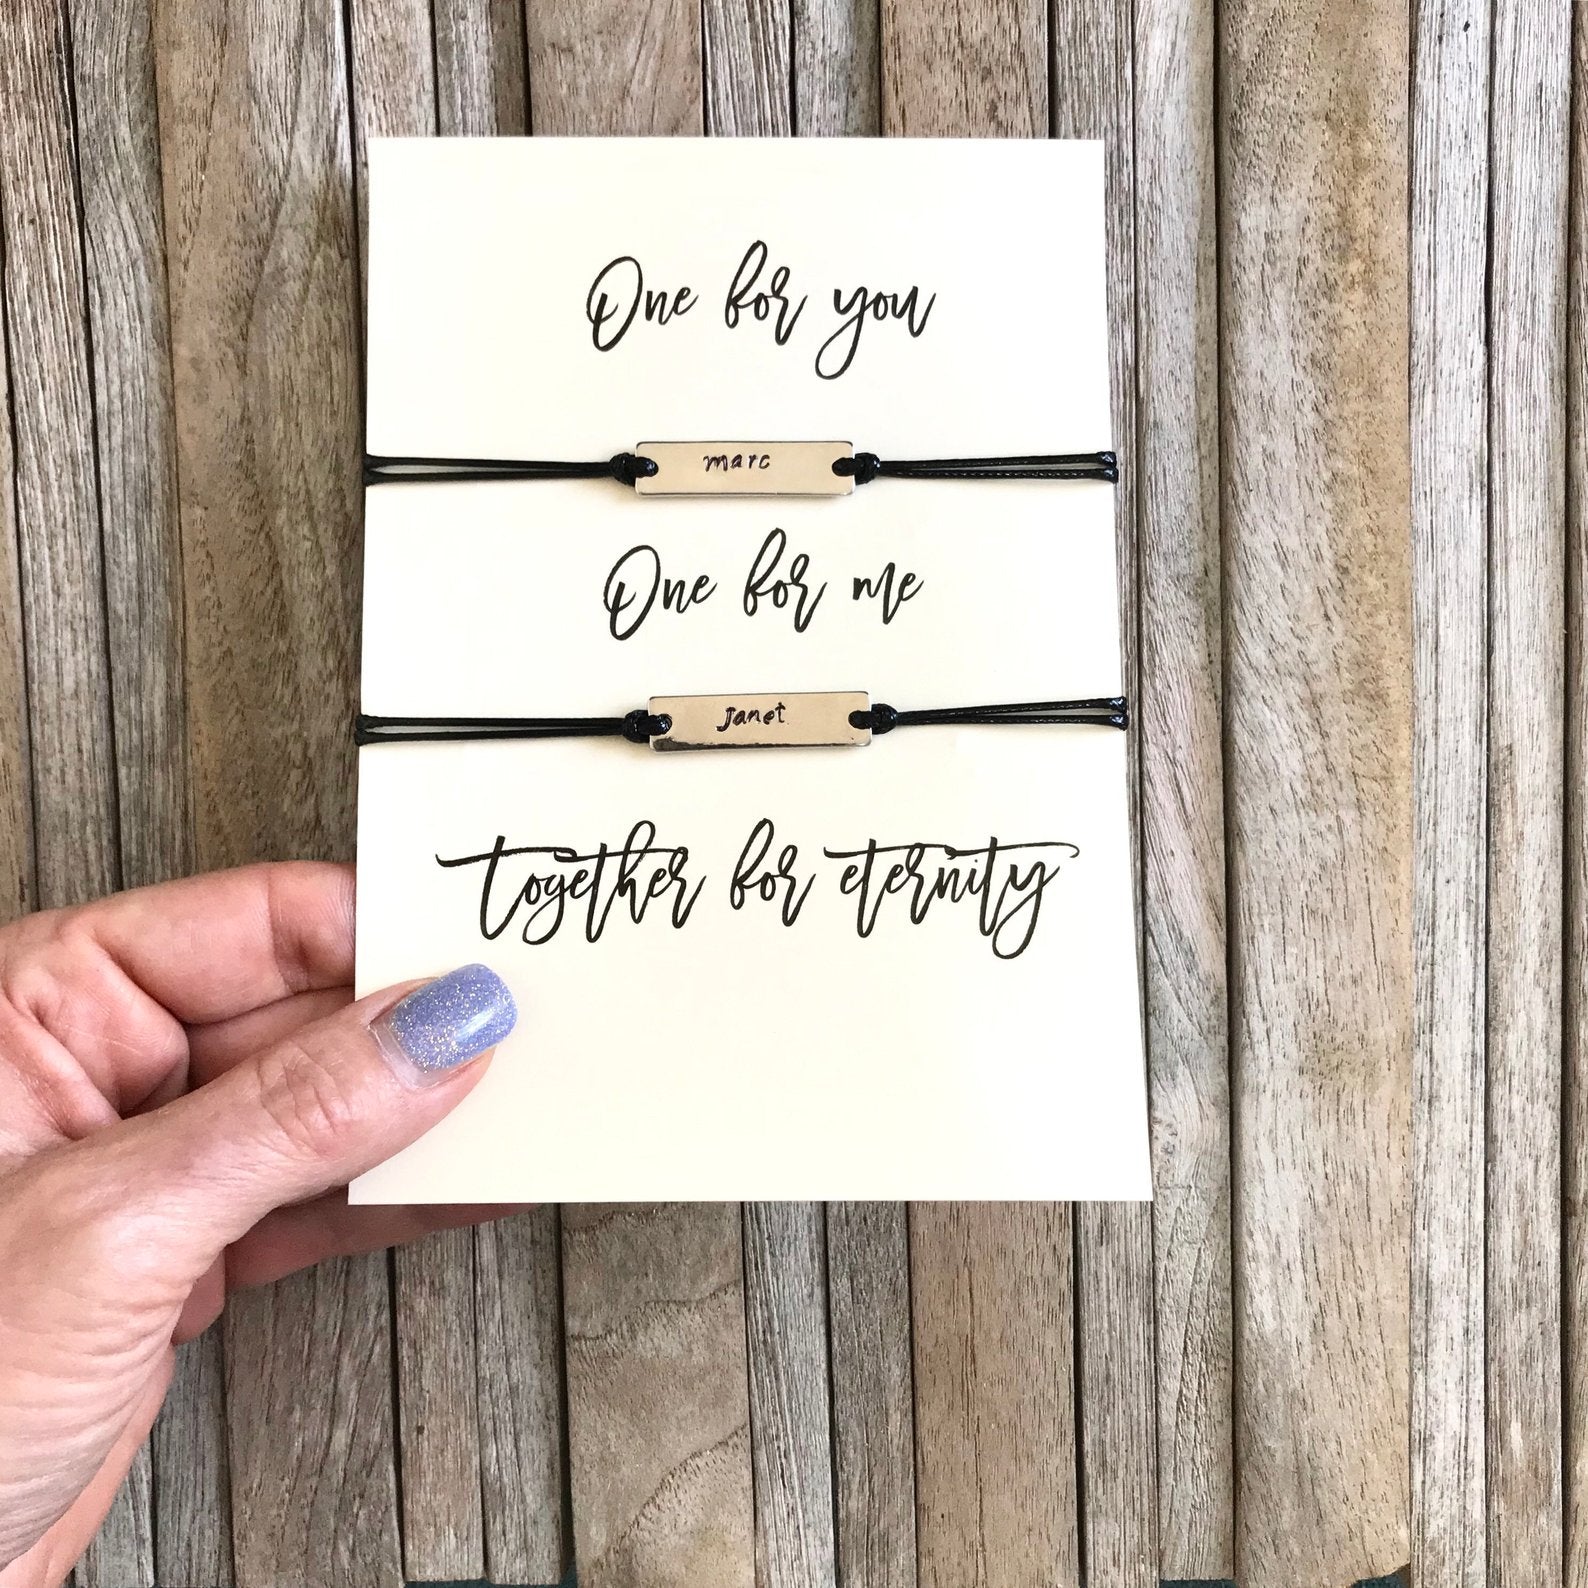 One for you
marc
One for me
janet
together for eternity